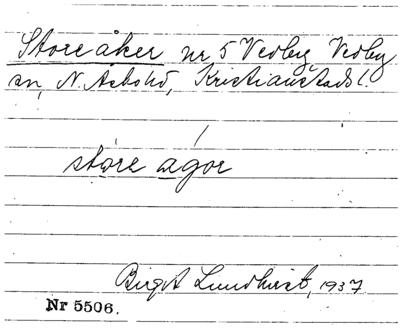 Storeåker nr 5 Vedby, Vedby
sn, N. Åsbohd, Kristianstads l.
støre agor
Birgit Lundkvist, 1937
Nr 5506.